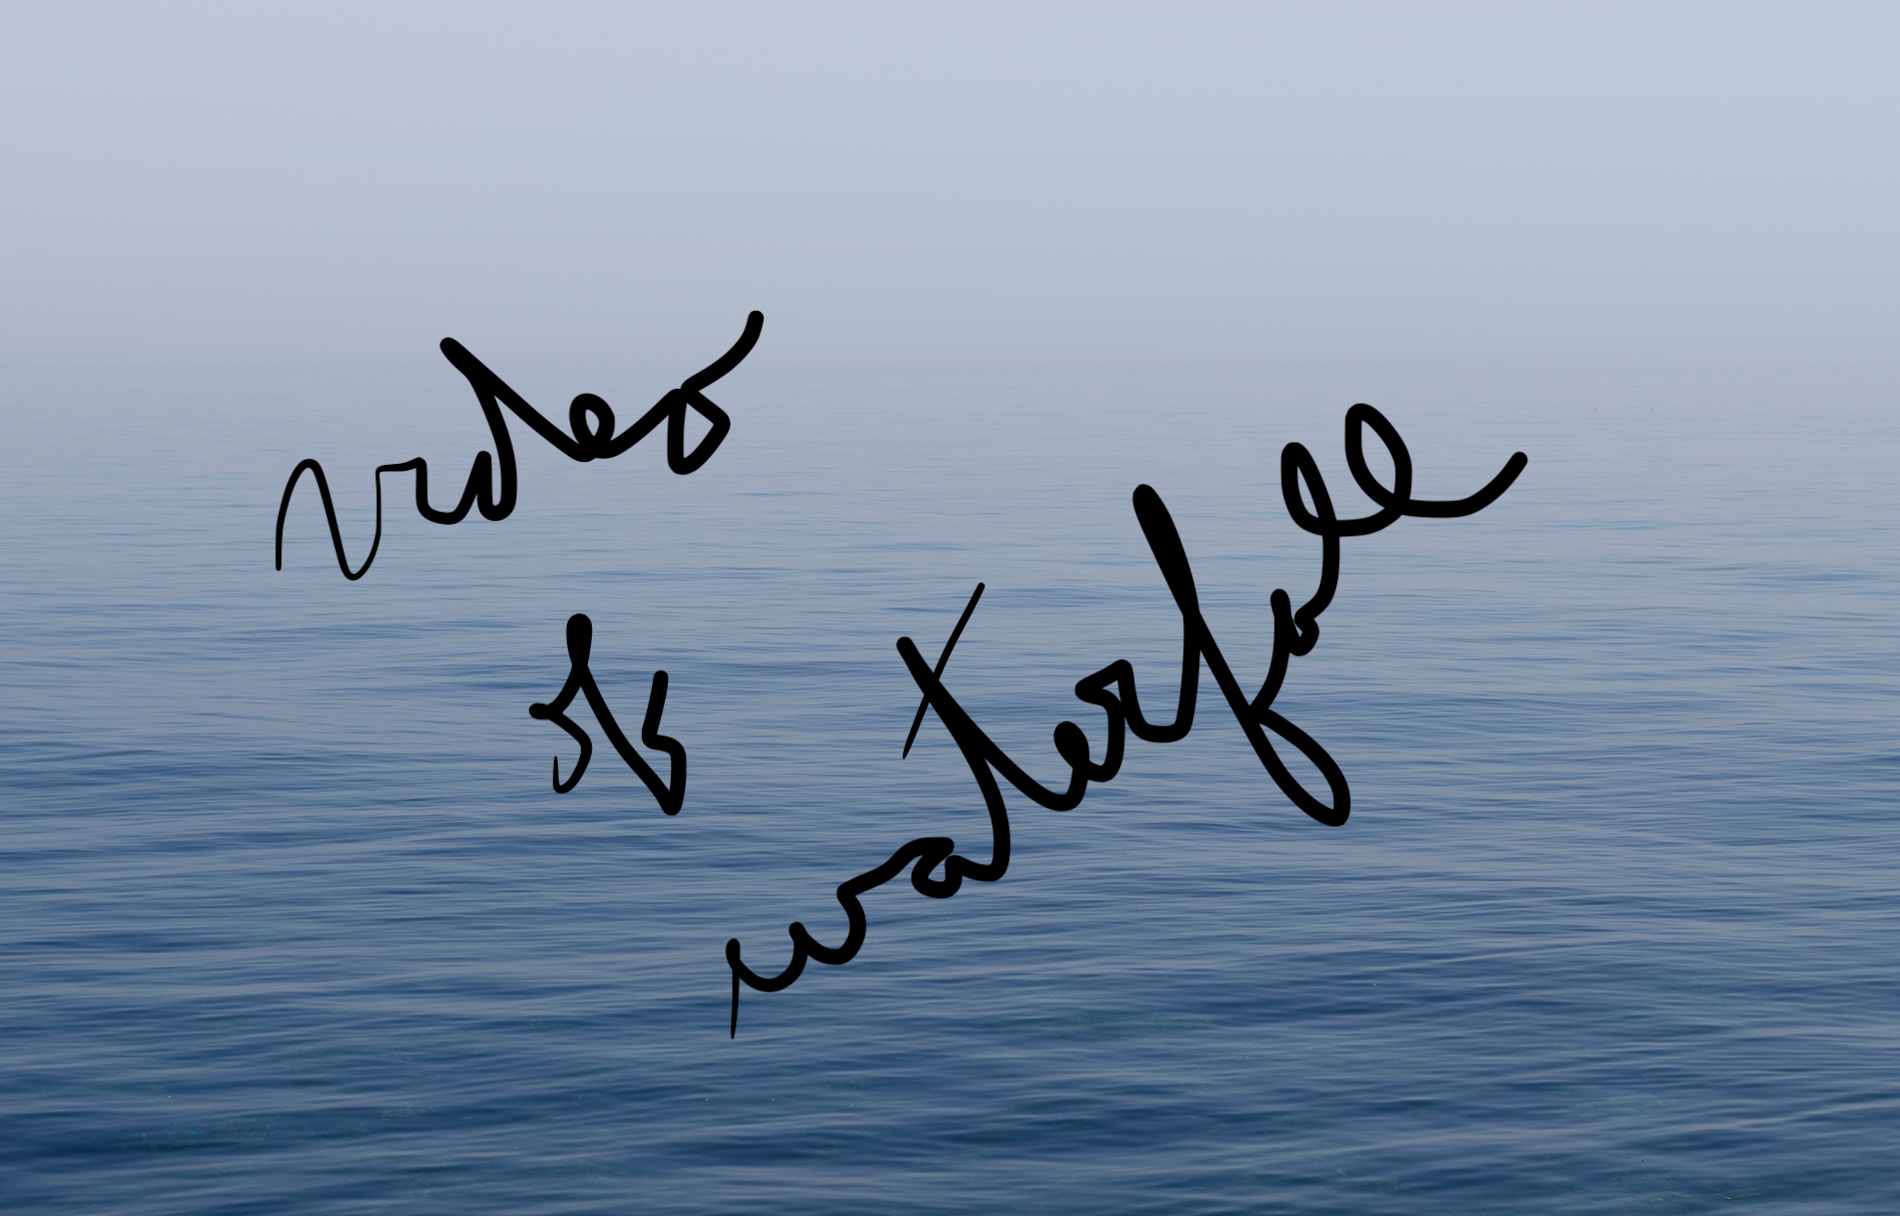 video
of
waterfall